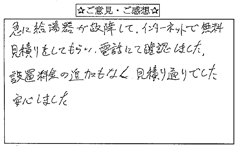 ☆ご意見・ご感想☆
急に給湯器が故障して、インターネットで無料
見積りをしてもらい、電話にて確認しました。
設置料金の追加もなく 見積り通りでした
安心しました